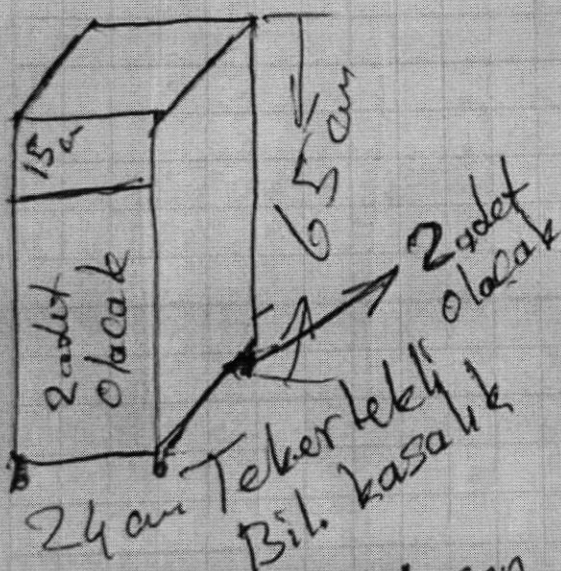 15 cm
65 cm
2 adet
olacak
2 adet
olacak
24 cm
Tekerlekli
Bil. kasalık